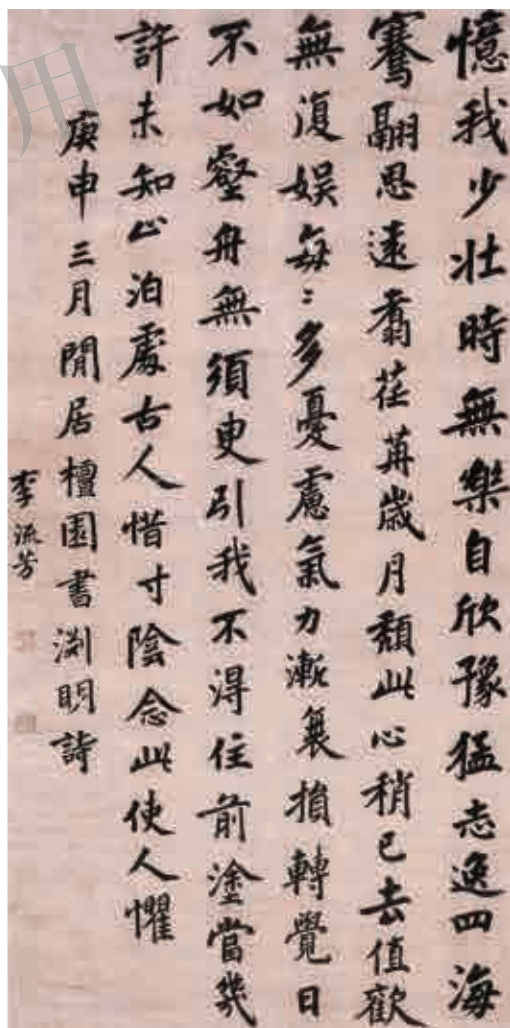 憶我少壯時無樂自欣豫猛志逸四海
騫翮思遠翥荏苒歳月頽此心稍已去值歡
無復娱每〻多憂慮氣力漸衰損轉覺日
不如壑舟無須更引我不得住前塗當幾
許未知止泊處古人惜寸陰念此使人懼
庚申三月閒居檀園書淵明詩
李流芳
用